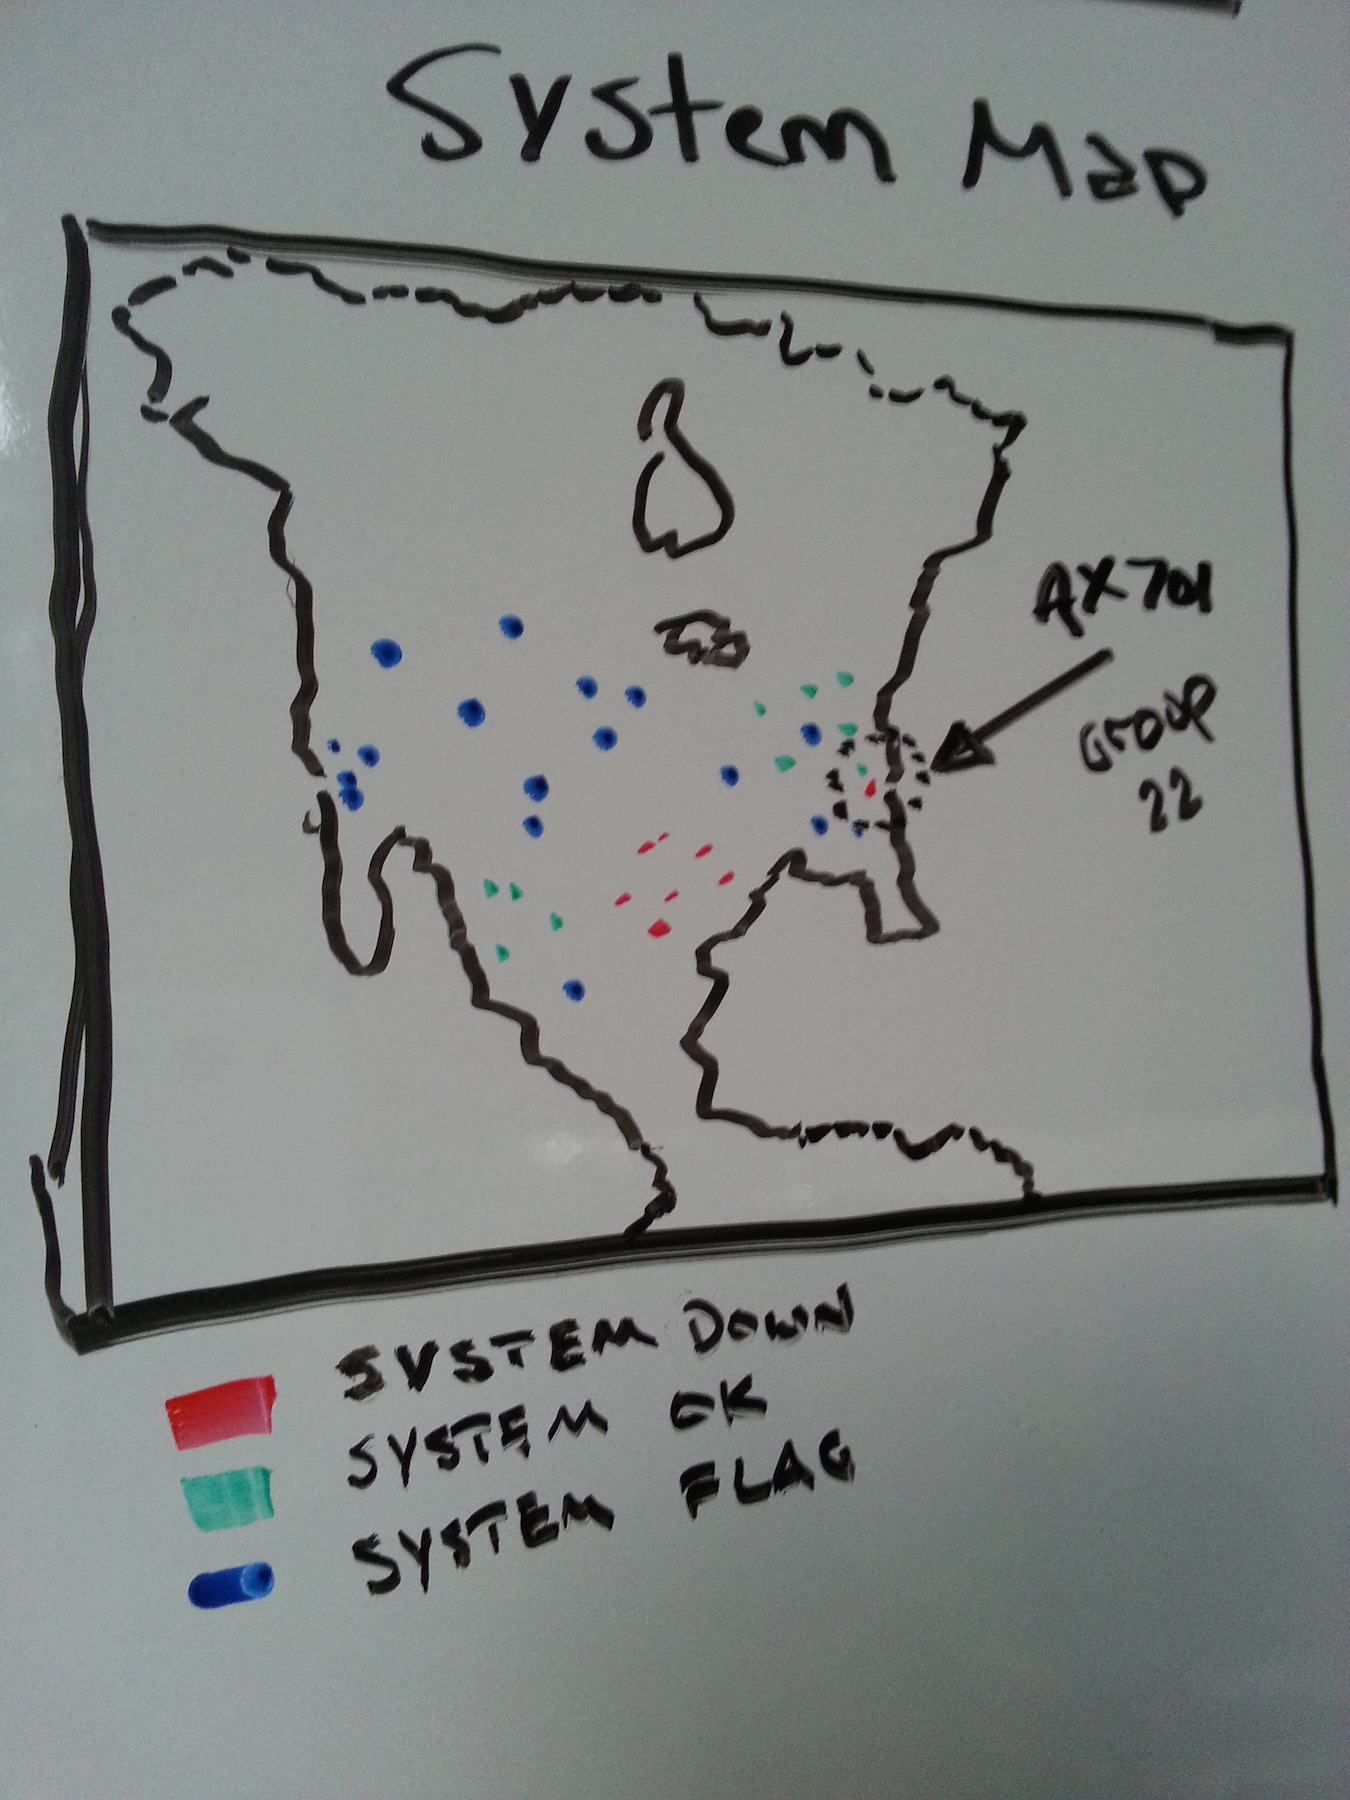 System Map
AX701
Group
22
SYSTEM DOWN
SYSTEM OK
SYSTEM FLAG